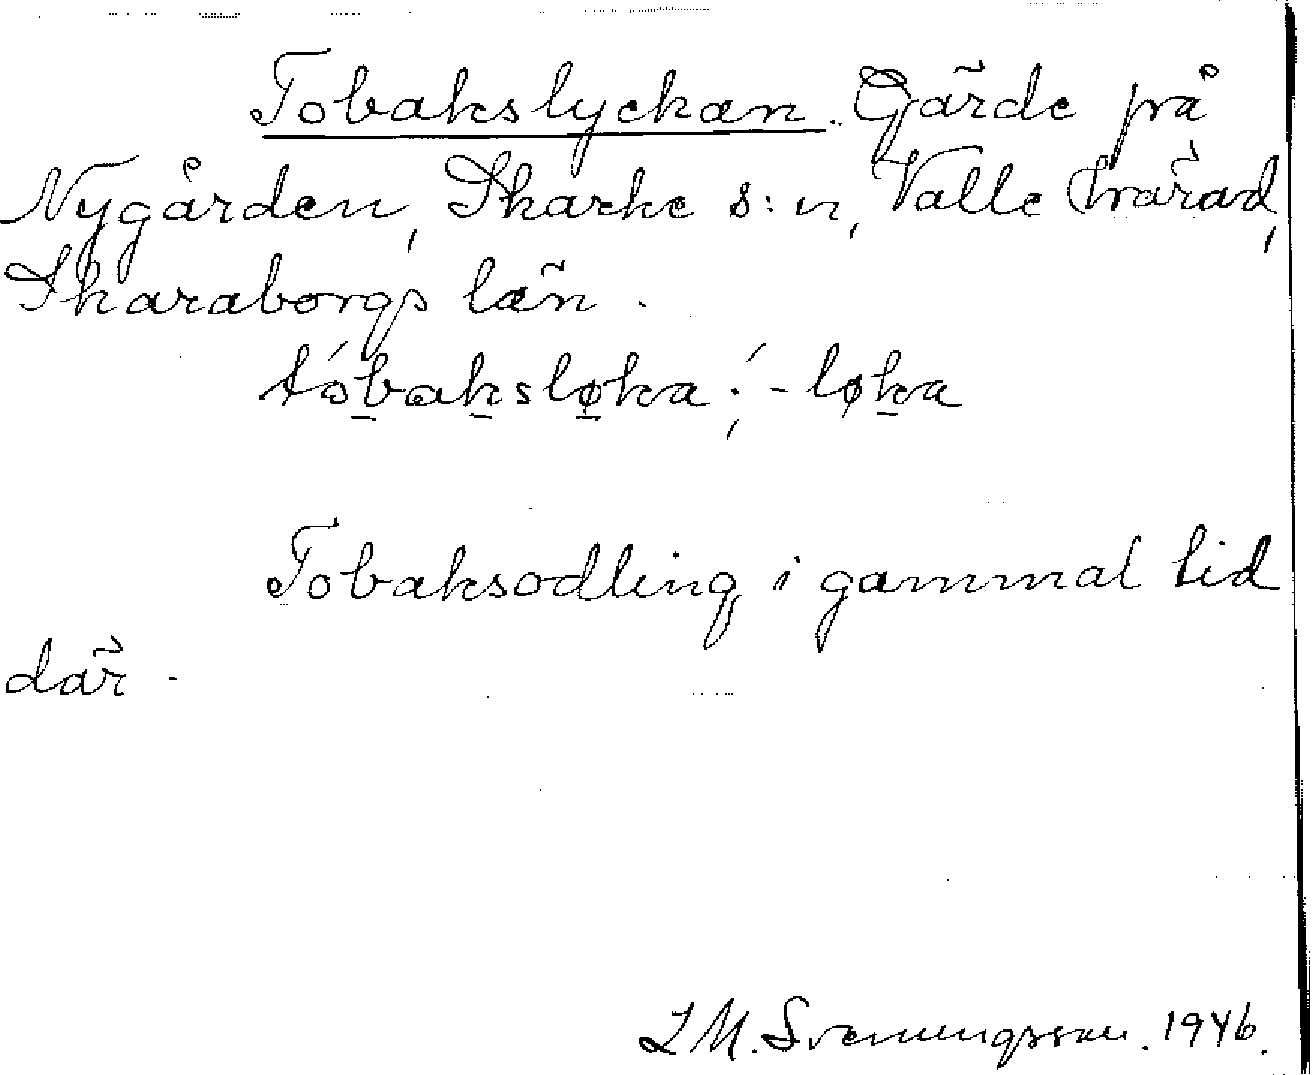 Tobakslyckan. Gärde på
Nygården, Skarke s:n, Valle härad,
Skaraborgs län.
tóbaksløka; -løka
Tobaksodling i gammal tid
där.
L M. Svenungsson. 1946.